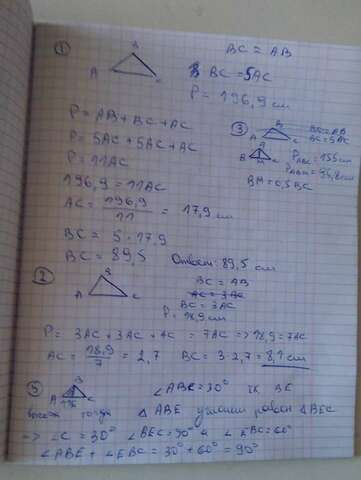 ①
B
A C
BC = AB
BC = 5AC
P = 196,9 см
P = AB + BC + AC
P = 5AC + 5AC + AC
P = 11AC
196,9 = 11AC
AC = 196,9 / 11 = 17,9 см
BC = 5 · 17,9
BC = 89,5 Ответ: 89,5 см
③
A C
BC = AB
BC = 5AC
B M C
P = 155 см
BM = 0,5 BC
②
B
A C
BC = AB
AC = 3AC
BC = 3AC
P = 18,9 см
P = 3AC + 3AC + AC = 7AC => 18,9 = 7AC
AC = 18,9 / 7 = 2,7 BC = 3 · 2,7 = 8,1 см
B
A C
∠ABC = 30° т.к. BE
высота тогда ∆ ABE равен ∆ BEC
=> ∠C = 30° ∠BEC = 90° и ∠EBC = 60°
∠ABE + ∠EBC = 30° + 60° = 90°